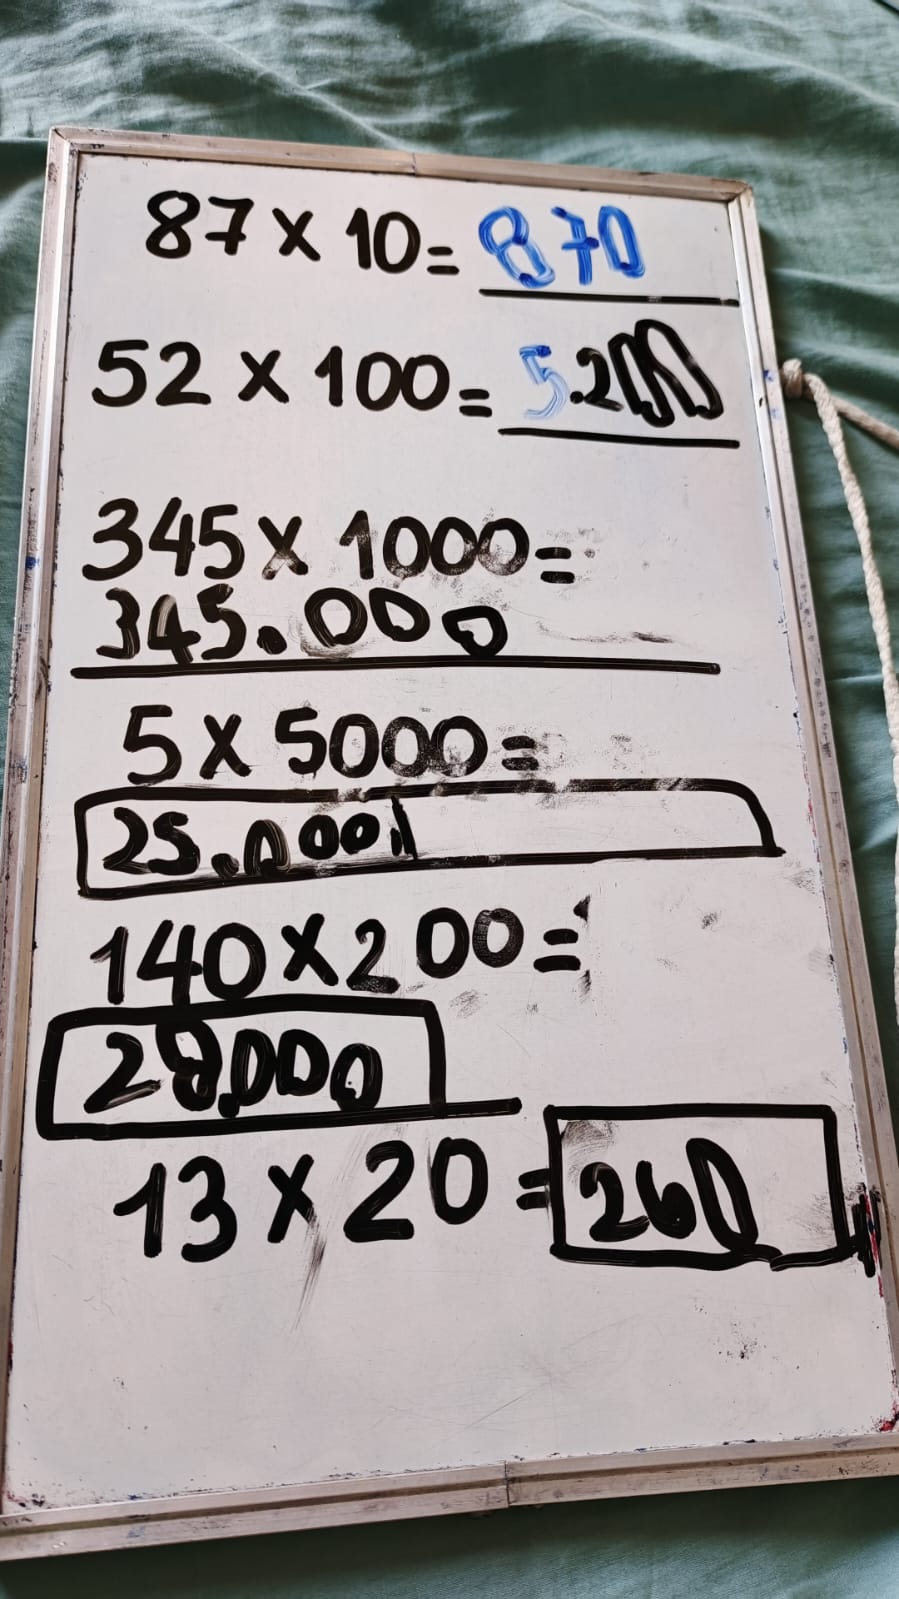 87 x 10 = 870
52 x 100 = 5.200
345 x 1000 =
345.000
5 x 5000 =
25.000
140 x 200 =
28.000
13 x 20 = 260